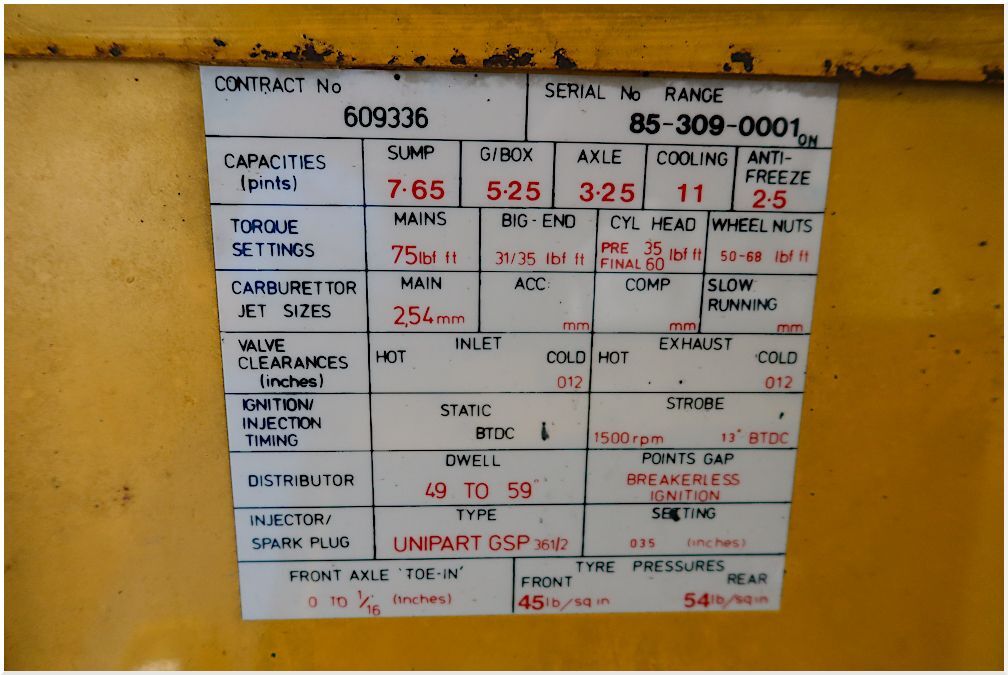 CONTRACT No
609336
SERIAL No RANGE
85-309-0001 ON
CAPACITIES
(pints)
SUMP
7·65
G/BOX
5·25
AXLE
3·25
COOLING
11
ANTI-
FREEZE
2·5
TORQUE
SETTINGS
MAINS
75lbf ft
BIG-END
31/35 lbf ft
CYL HEAD
PRE 35 lbf ft
FINAL 60
WHEEL NUTS
50-68 lbf ft
CARBURETTOR
JET SIZES
MAIN
2,54mm
ACC
mm
COMP
mm
SLOW
RUNNING
mm
VALVE
CLEARANCES
(inches)
INLET
HOT COLD
012
EXHAUST
HOT COLD
012
IGNITION/
INJECTION
TIMING
STATIC
BTDC
STROBE
1500rpm 13° BTDC
DISTRIBUTOR
DWELL
49 TO 59°
POINTS GAP
BREAKERLESS
IGNITION
INJECTOR/
SPARK PLUG
TYPE
UNIPART GSP 361/2
SETTING
035 (inches)
FRONT AXLE 'TOE-IN'
0 TO 1/16 (inches)
TYRE PRESSURES
FRONT REAR
45lb/sq in 54lb/sq in